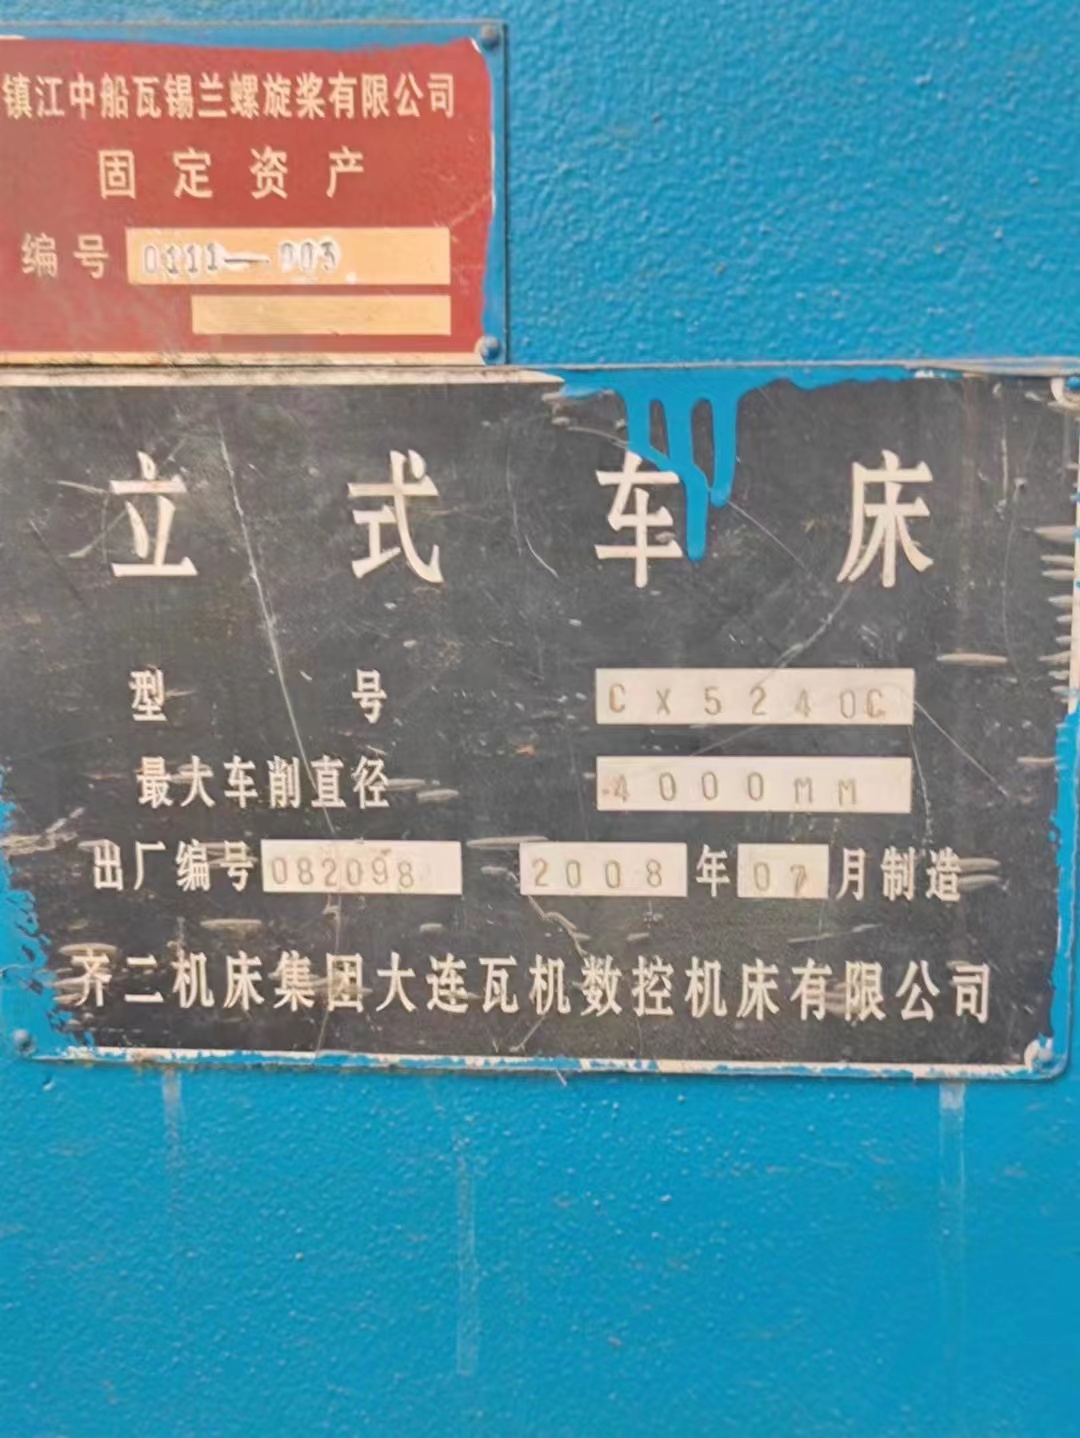 镇江中船瓦锡兰螺旋桨有限公司
固定资产
编号 0111—003
立式车床
型号 CX5240C
最大车削直径 4000MM
出厂编号 082098 2008年07月制造
齐二机床集团大连瓦机数控机床有限公司